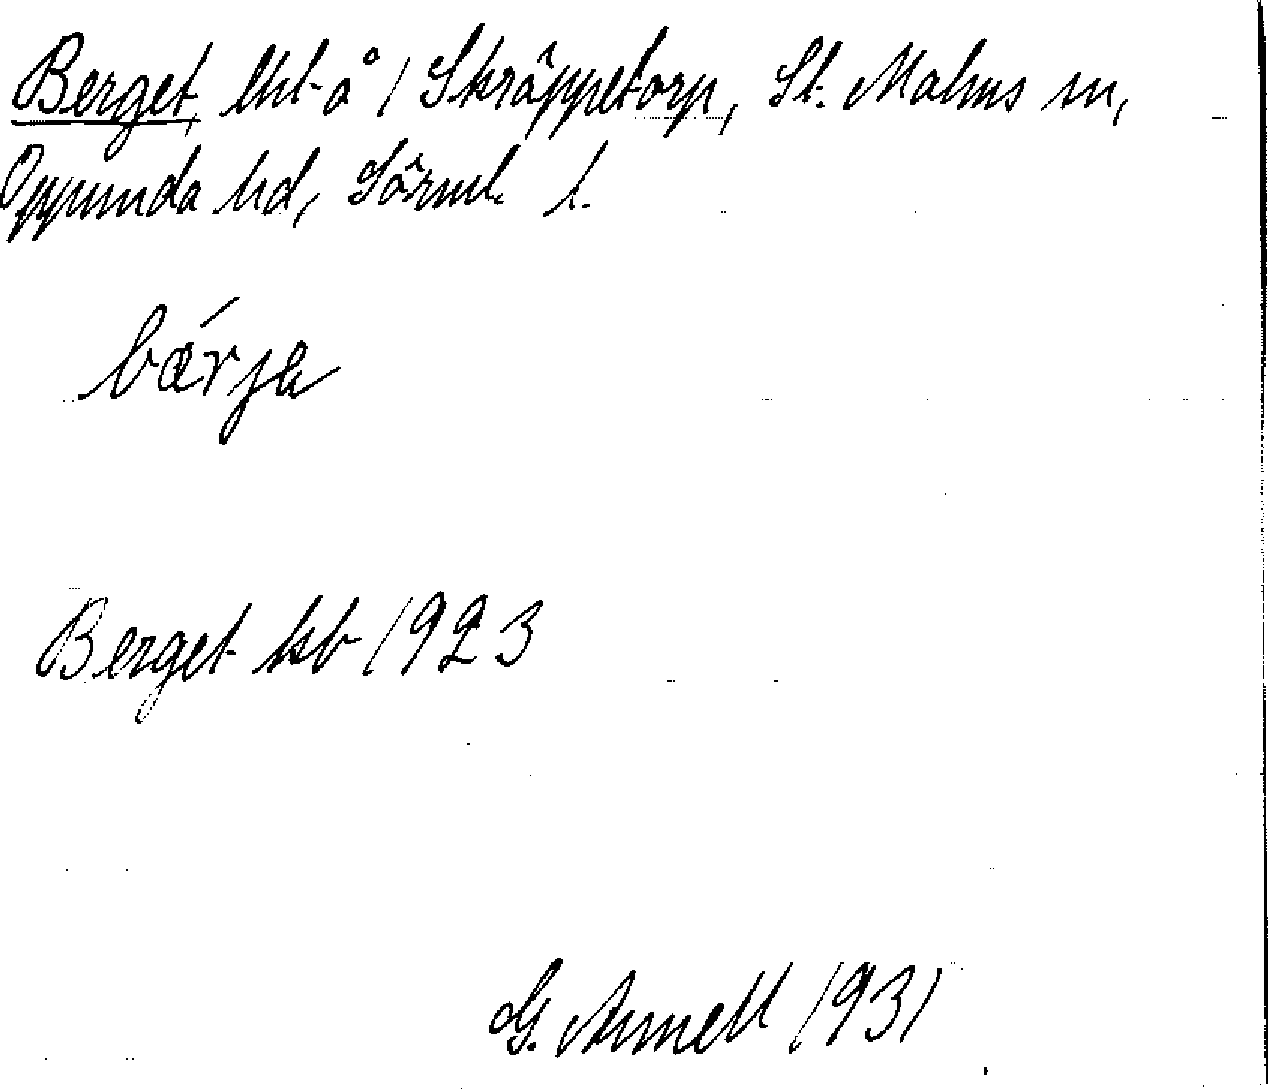 Berget, lht å / Skräppetorp, St. Malms sn,
Oppunda hd, Sörml. l.
bærja
Berget kb 1923
G. Arnell 1931